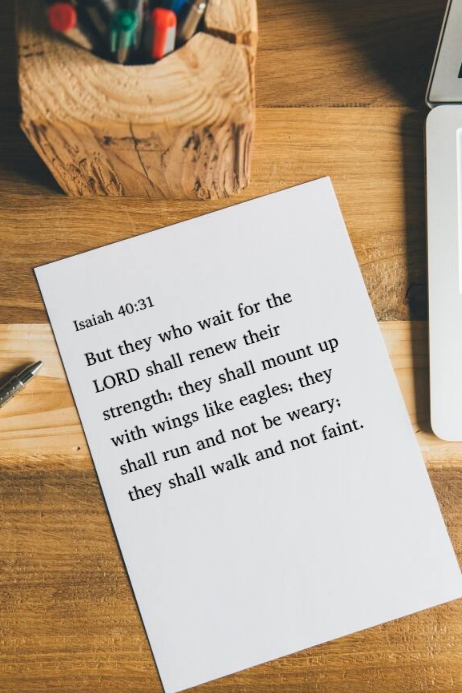 Isaiah 40:31
But they who wait for the
LORD shall renew their
strength; they shall mount up
with wings like eagles; they
shall run and not be weary;
they shall walk and not faint.